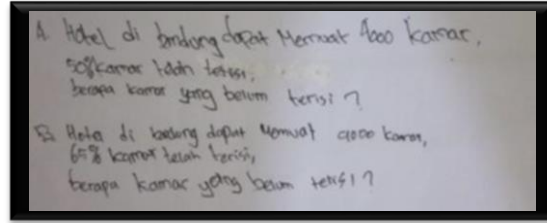 A. Hotel di bandung dapat Memuat 4000 kamar,
50% kamar telah terisi,
berapa kamar yang belum terisi ?
B. Hotel di bandung dapat Memuat 4000 kamar,
65% kamar telah terisi,
berapa kamar yang belum terisi ?